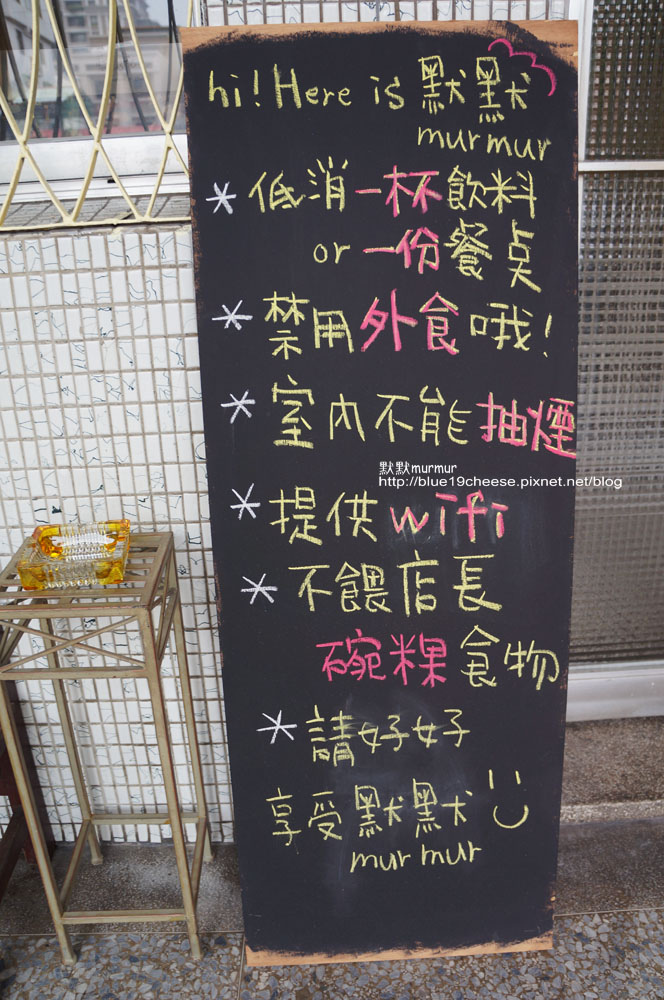 hi! Here is 默默
murmur
* 低消一杯飲料
or 一份餐桌
* 禁用外食哦!
* 室內不能抽煙
默默murmur
http://blue19cheese.pixnet.net/blog
* 提供wifi
* 不餵店長
碗粿食物
* 請好好
享受默默
murmur